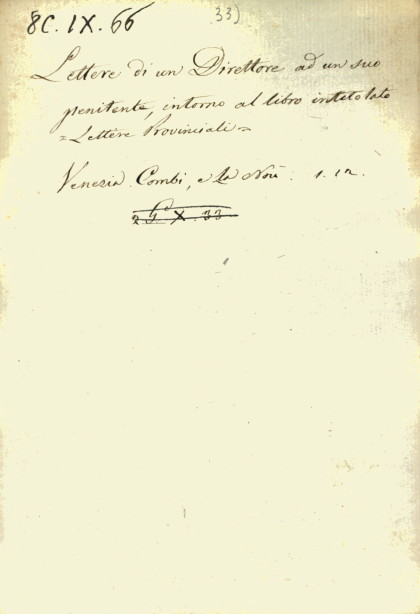 8C. IX. 66
33)
Lettere di un Direttore ad un suo
penitente, intorno al libro intitolato
= Lettere Provinciali =
Venezia. Combi, e la Noù. 1. 12.
2 G X. 33